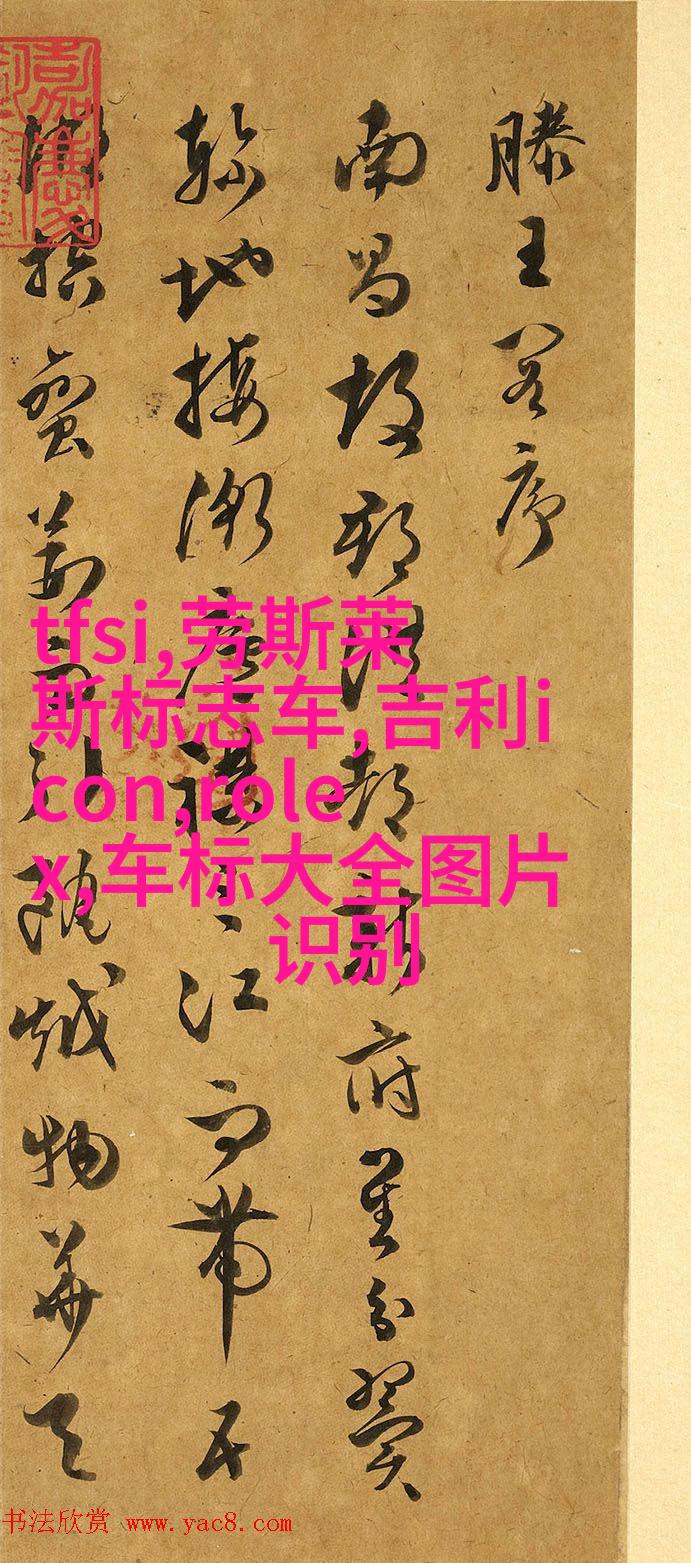 滕王阁序
南昌故郡洪都新府星分翼
軫地接衡廬襟三江而帶五
湖控蠻荊而引甌越物華天
tfsi,劳斯莱
斯标志车,吉利i
con,role
x,车标大全图片
识别
书法欣赏 www.yac8.com